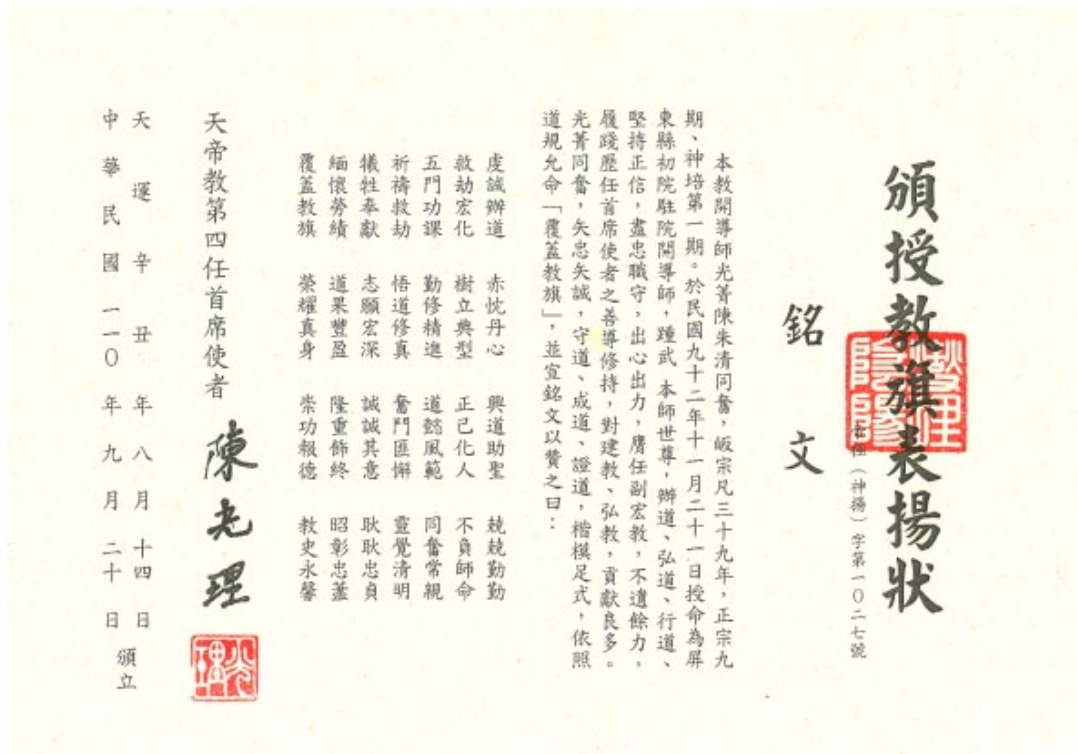 頒授教旗表揚狀
（神揚）字第一０二七號
銘文
本教開導師光菁陳朱清同奮，皈宗凡三十九年，正宗九
期、神培第一期。於民國九十二年十一月二十一日授命為屏
東縣初院駐院開導師，踵武 本師世尊，辦道、弘道、行道、
堅持正信，盡忠職守，出心出力，膺任副宏教，不遺餘力，
履踐歷任首席使者之善導修持，對建教、弘教，貢獻良多。
光菁同奮，矢忠矢誠，守道、成道、證道，楷模足式，依照
道規允命「覆蓋教旗」，並宣銘文以贊之曰：
虔誠辦道 赤忱丹心 興道助聖 兢兢勤勤
救劫宏化 樹立典型 正己化人 不負師命
五門功課 勤修精進 道懿風範 同奮常親
祈禱救劫 悟道修真 奮鬥匪懈 靈覺清明
犧牲奉獻 志願宏深 誠誠其意 耿耿忠貞
緬懷勞績 道果豐盈 隆重飾終 昭彰忠藎
覆蓋教旗 榮耀真身 崇功報德 教史永馨
天帝教第四任首席使者 陳光理
光理
天運辛丑年八月十四日
中華民國一一０年九月二十日 頒立